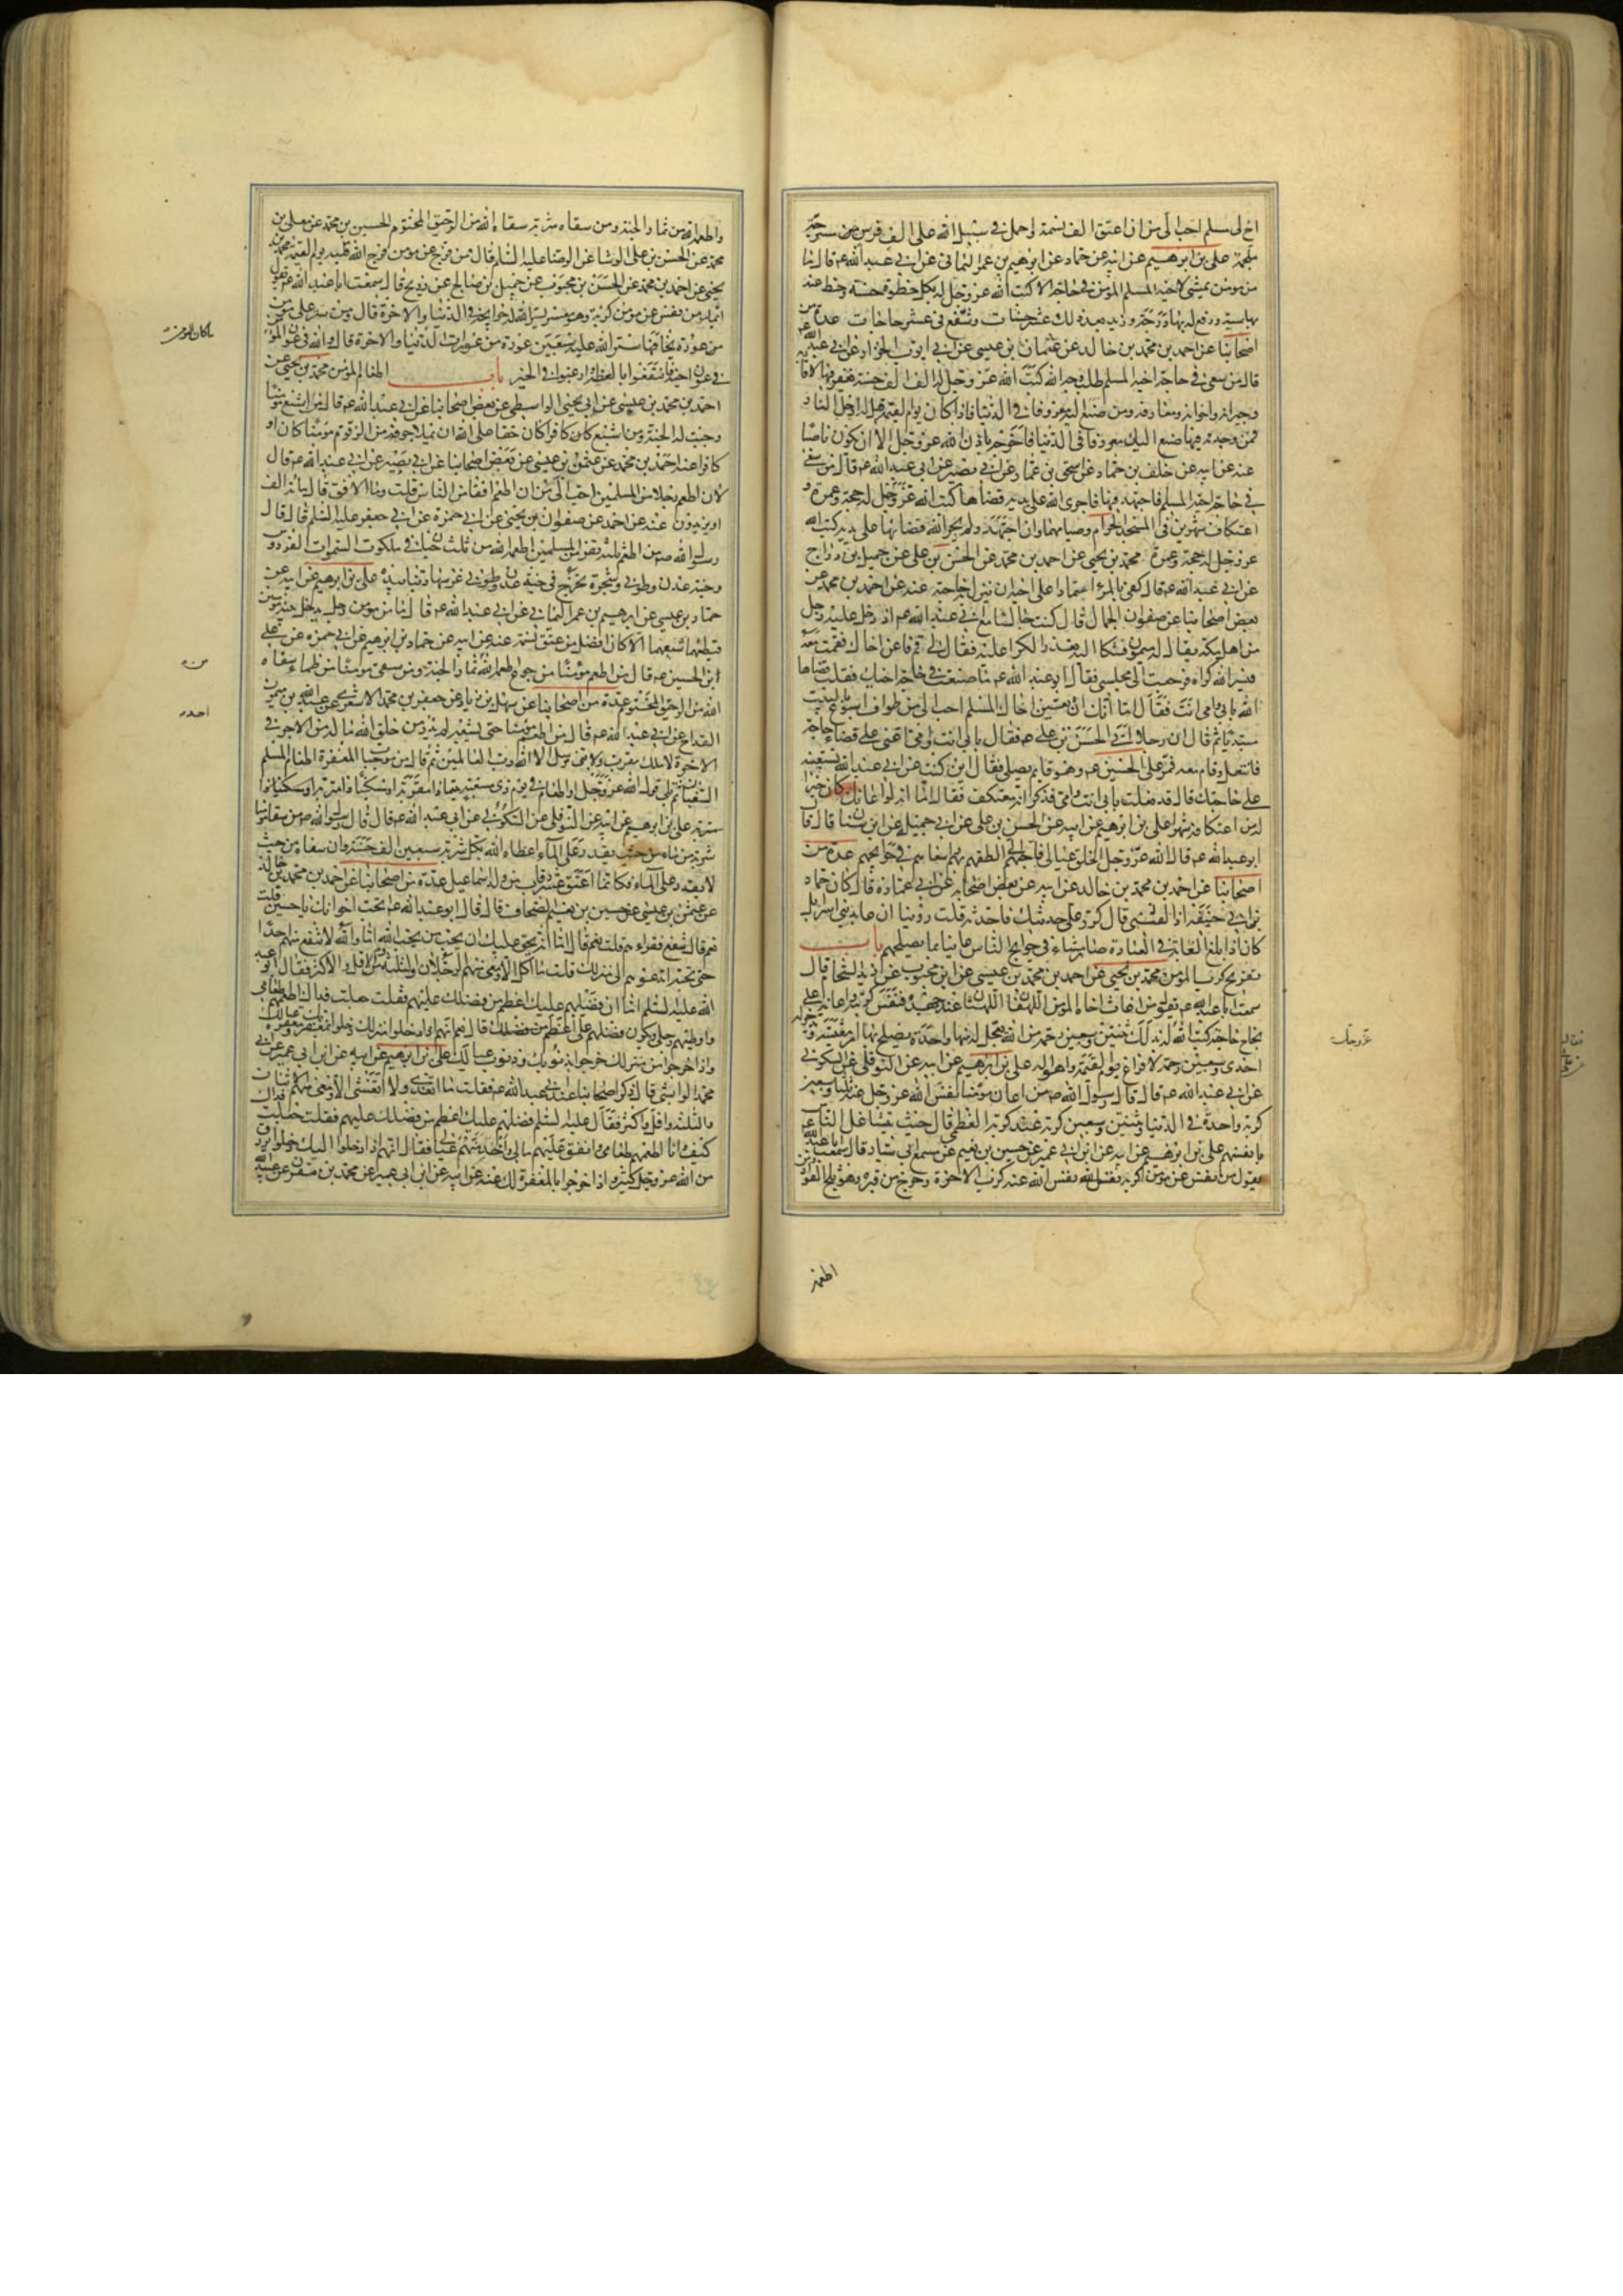 اخ لى مسلم احب الى من ان اعتق الف نسمة واحمل فى سبيل الله على الف فرس مسرجة
ملجمة على بن ابرهيم عن ابيه عن حماد عن ابرهيم بن عمر اليمانى عن ابى عبد الله ع قال ما
من مومن يمشى لاخيه المسلم المؤمن فى حاجة الا كتب الله عز وجل له بكل خطوة حسنة وحط عنه
بها سيئة ورفع له بها درجة وزيد بعد ذلك عشر حسنات وشفع فى عشر حاجات عدة من
اصحابنا عن احمد بن محمد بن خالد عن عثمان بن عيسى عن ابى ايوب الخزاز عن ابى عبد الله ع
قال من سعى فى حاجة اخيه المسلم طلب وجه الله كتب الله عز وجل له الف الف حسنة يغفر فيها لاقاربه
وجيرانه واخوانه ومعارفه ومن صنع اليه معروفا فى الدنيا فاذا كان يوم القيمة قيل له ادخل النار
فمن وجدته فيها صنع اليك معروفا فى الدنيا فاخرجه باذن الله عز وجل الا ان يكون ناصبا
عنه عن ابيه عن خلف بن حماد عن اسحق بن عمار عن ابى بصير عن ابى عبد الله ع قال من سعى
فى حاجة اخيه المسلم فاجتهد فيها فاجرى الله على يديه قضاها كتب الله عز وجل له حجة وعمرة و
اعتكاف شهرين فى المسجد الحرام وصيامهما وان اجتهد ولم يجر الله قضاءها على يديه كتب الله
عز وجل له حجة وعمرة محمد بن يحيى عن احمد بن محمد عن الحسن بن على عن جميل بن دراج
عن ابى عبد الله ع قال كفى بالمرء اعتمادا على اخيه ان ينزل به حاجته عنه عن احمد بن محمد عن
بعض اصحابنا عن صفوان الجمال قال كنت جالسا مع ابى عبد الله ع اذ دخل عليه رجل
من اهل مكة يقال له ميمون فشكا اليه تعذر الكراء عليه فقال لى قم فاعن اخاك فقمت معه
فيسر الله كراه فرجعت الى مجلسى فقال ابو عبد الله ع ما صنعت فى حاجة اخيك فقلت قضاها
الله بابى وامى انت فقال اما انك ان تعين اخاك المسلم احب الى من طواف اسبوع بالبيت
مبتديا ثم قال ان رجلا اتى الحسن بن على ع فقال بابى انت وامى اعنى على قضاء حاجة
فانتعل وقام معه فمر على الحسين ع وهو قايم يصلى فقال اين كنت عن ابى عبد الله تستعينه
على حاجتك قال قد فعلت بابى انت وامى فذكر انه معتكف فقال اما انه لو اعانك كان خيرا
له من اعتكافه شهرا على بن ابرهيم عن ابيه عن الحسن بن على عن ابى جميلة عن ابن سنان قال قال
ابو عبد الله ع قال الله عز وجل الخلق عيالى فاحبهم الى الطفهم بهم واسعاهم فى حوائجهم عدة من
اصحابنا عن احمد بن محمد بن خالد عن ابيه عن بعض اصحابه عن ابى عمارة قال كان حماد
بن ابى حنيفة اذا لقينى قال كرر على حديثك فاحدثه قلت روينا ان عابد بنى اسرائيل
كان اذا بلغ الغاية فى العبادة صار مشاء فى حوايج الناس عانيا بما يصلحهم باب
تفريج كرب المؤمن محمد بن يحيى عن احمد بن محمد بن عيسى عن ابن محبوب عن زيد الشحام قال
سمعت ابا عبد الله ع يقول من اغاث اخاه المومن اللهفان اللهثان عند جهده فنفس كربته واعانه على
نجاح حاجته كتب الله له بذلك ثنتين وسبعين رحمة من الله يعجل له منها واحدة يصلح بها امر معيشته ويدخر له
احدى وسبعين رحمة لافزاع يوم القيمة واهواله على بن ابرهيم عن ابيه عن النوفلى عن السكونى
عن ابى عبد الله ع قال قال رسول الله ص من اعان مومنا نفس الله عز وجل عنه ثلثا وسبعين
كربة واحدة فى الدنيا وثنتين وسبعين كربة عند كربه العظمى قال حيث يتشاغل الناس
بانفسهم على بن ابرهيم عن ابيه عن ابن ابى عمير عن حسين بن نعيم عن مسمع ابى سيار قال سمعت ابا عبد الله ع
يقول من نفس عن مومن كربة نفس الله عنه كرب الاخرة وخرج من قبره وهو ثلج الفؤاد ومن
عز وجل
اطعمه
واطعمه الله من ثمار الجنة ومن سقاه شربة سقاه الله من الرحيق المختوم الحسين بن محمد عن معلى بن
محمد عن الحسن بن على الوشا عن الرضا عليه السلم قال من فرج عن مومن فرج الله قلبه يوم القيمة محمد بن
يحيى عن احمد بن محمد عن الحسن بن محبوب عن جميل بن صالح عن ذريح قال سمعت ابا عبد الله ع يقول
ايما مومن نفس عن مومن كربة وهو معسر يسر الله له حوايجه فى الدنيا والاخرة قال ومن ستر على مومن
من عورة يخافها ستر الله عليه سبعين عورة من عورات الدنيا والاخرة قال والله فى عون المؤمن
فى عون اخيه فانتفعوا بالعظة وارغبوا فى الخير باب اطعام المؤمن محمد بن يحيى عن
احمد بن محمد بن عيسى عن ابى يحيى الواسطى عن بعض اصحابنا عن ابى عبد الله ع قال من اشبع مومنا
وجبت له الجنة ومن اشبع كافرا كان حقا على الله ان يملا جوفه من الزقوم مومنا كان او
كافرا عنه عن احمد بن محمد عن عثمن بن عيسى عن بعض اصحابنا عن ابى بصير عن ابى عبد الله ع قال
لان اطعم رجلا من المسلمين احب الى من ان اطعم افقا من الناس قلت وما الافق قال مائة الف
او يزيدون عنه عن احمد عن صفوان بن يحيى عن ابى حمزة عن ابى جعفر عليه السلم قال قال
رسول الله ص من اطعم ثلثة نفر من المسلمين اطعمه الله من ثلث جنان فى ملكوت السموات الفردوس
وجنة عدن وطوبى وشجرة تخرج فى جنة عدن وطوبى غرسها ربنا بيده على بن ابرهيم عن ابيه عن
حماد بن عيسى عن ابرهيم بن عمر اليمانى عن ابى عبد الله ع قال ما من مومن رجل يدخل بيته مومنين
فيطعمهما شبعهما الا كان افضل من عتق نسمة عنه عن ابيه عن حماد بن ابرهيم عن ابى حمزه عن على
بن الحسين ع قال من اطعم مومنا من جوع اطعمه الله من ثمار الجنة ومن سقى مومنا من ظماء سقاه
الله من الرحيق المختوم عدة من اصحابنا عن سهل بن زياد عن جعفر بن محمد الاشعرى عن عبد الله بن ميمون
القداح عن ابى عبد الله ع قال من اطعم مومنا حتى يشبعه لم يدر من خلق الله ما له من الاجر فى
الاخرة لا ملك مقرب ولا نبى مرسل الا الله رب العالمين ثم قال من موجبات المغفرة اطعام المسلم
السغبان ثم تلى قول الله عز وجل او اطعام فى يوم ذى مسغبة يتيما ذا مقربة او مسكينا ذا متربة
على بن ابرهيم عن ابيه عن النوفلى عن السكونى عن ابى عبد الله ع قال قال رسول الله ص من سقى مومنا
شربة من ماء من حيث يقدر على الماء اعطاه الله بكل شربة سبعين الف حسنة وان سقاه من حيث
لا يقدر على الماء فكانما اعتق عشر رقاب من ولد اسماعيل عدة من اصحابنا عن احمد بن محمد بن خالد
عن عثمن بن عيسى عن حسين بن نعيم الصحاف قال قال ابو عبد الله ع تحب اخوانك يا حسين قلت
نعم قال تنفع فقراءهم قلت نعم قال اما انه يحق عليك ان تحب من يحب الله اما والله لا تنفع منهم احدا
حتى تحبه اتدعوهم الى منزلك قلت ما اكل الا ومعى منهم الرجلان والثلثة والاقل والاكثر فقال ابو عبد
الله عليه السلم اما ان فضلهم عليك اعظم من فضلك عليهم فقلت جعلت فداك اطعمهم طعامى
واوطئهم رحلى ويكون فضلهم على اعظم من فضلك قال نعم انهم اذا دخلوا منزلك دخلوا بمغفرتك ومغفرة عيالك
واذا خرجوا من منزلك خرجوا بذنوبك وذنوب عيالك على بن ابرهيم عن ابيه عن ابن ابى عمير عن ابى
محمد الوابشى قال ذكر اصحابنا عند ابى عبد الله ع فقلت ما اتغدى ولا اتعشى الا ومعى منهم اثنان
والثلثة واقل واكثر فقال عليه السلم فضلهم عليك اعظم من فضلك عليهم فقلت جعلت فداك
كيف وانا اطعمهم طعامى وانفق عليهم مالى واخدمهم عيالى فقال انهم اذا دخلوا اليك دخلوا برزق
من الله عز وجل كثير واذا خرجوا خرجوا بالمغفرة لك عنه عن ابيه عن ابن ابى عمير عن محمد بن مقرن عن عبيد الله
ما كان المؤمن
من
احمد